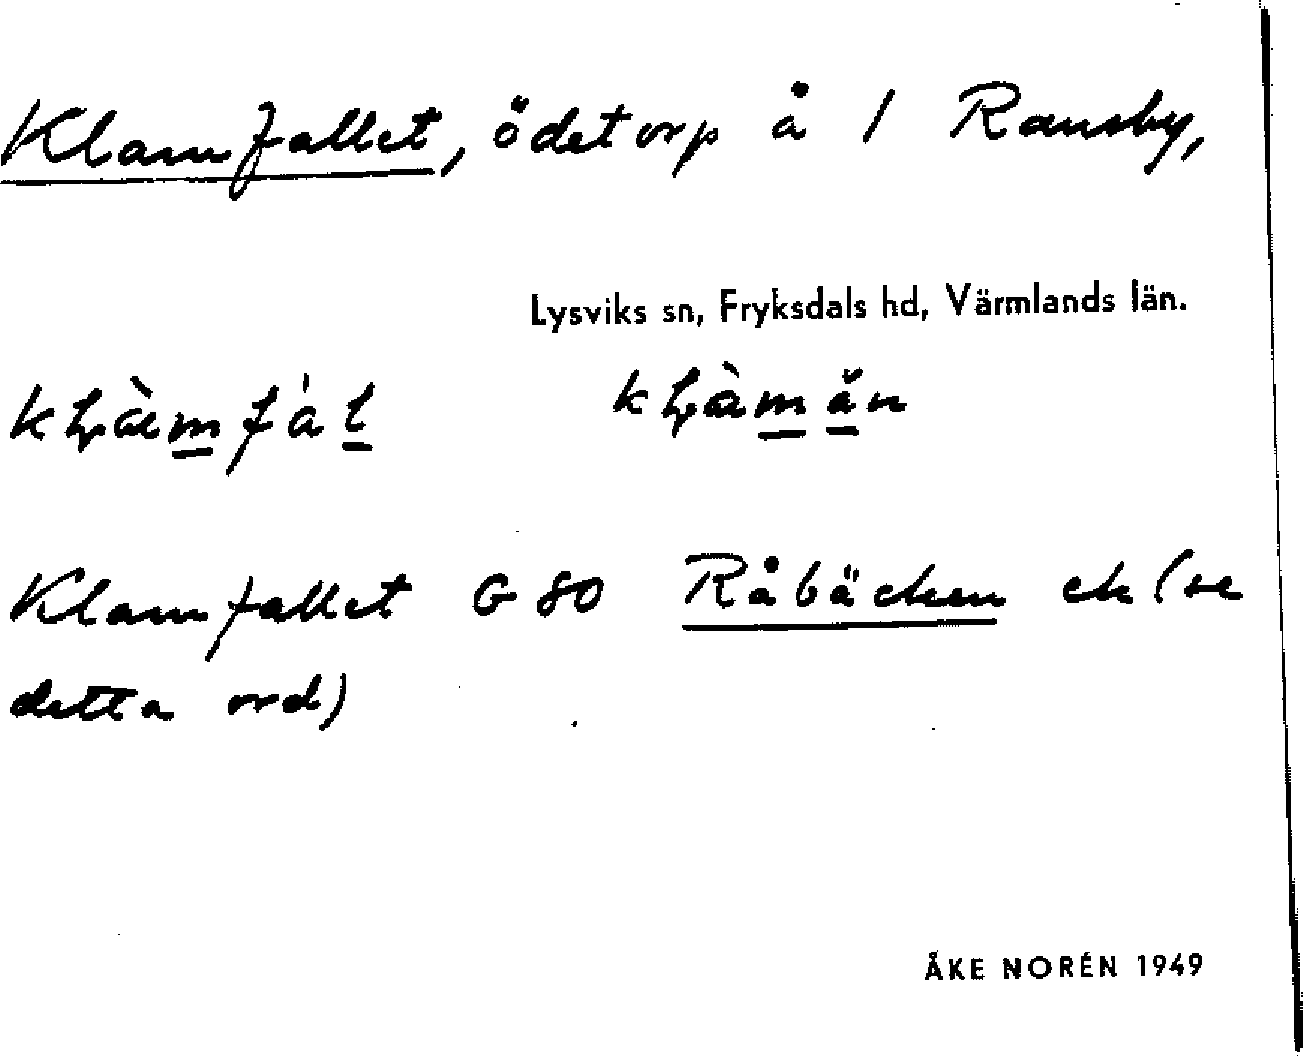 Klamfallet, ödetorp å 1 Ransby,
Lysviks sn, Fryksdals hd, Värmlands län.
Klamfallet G 80 Råbäcken ek (se
detta ord)
ÅKE NORÉN 1949